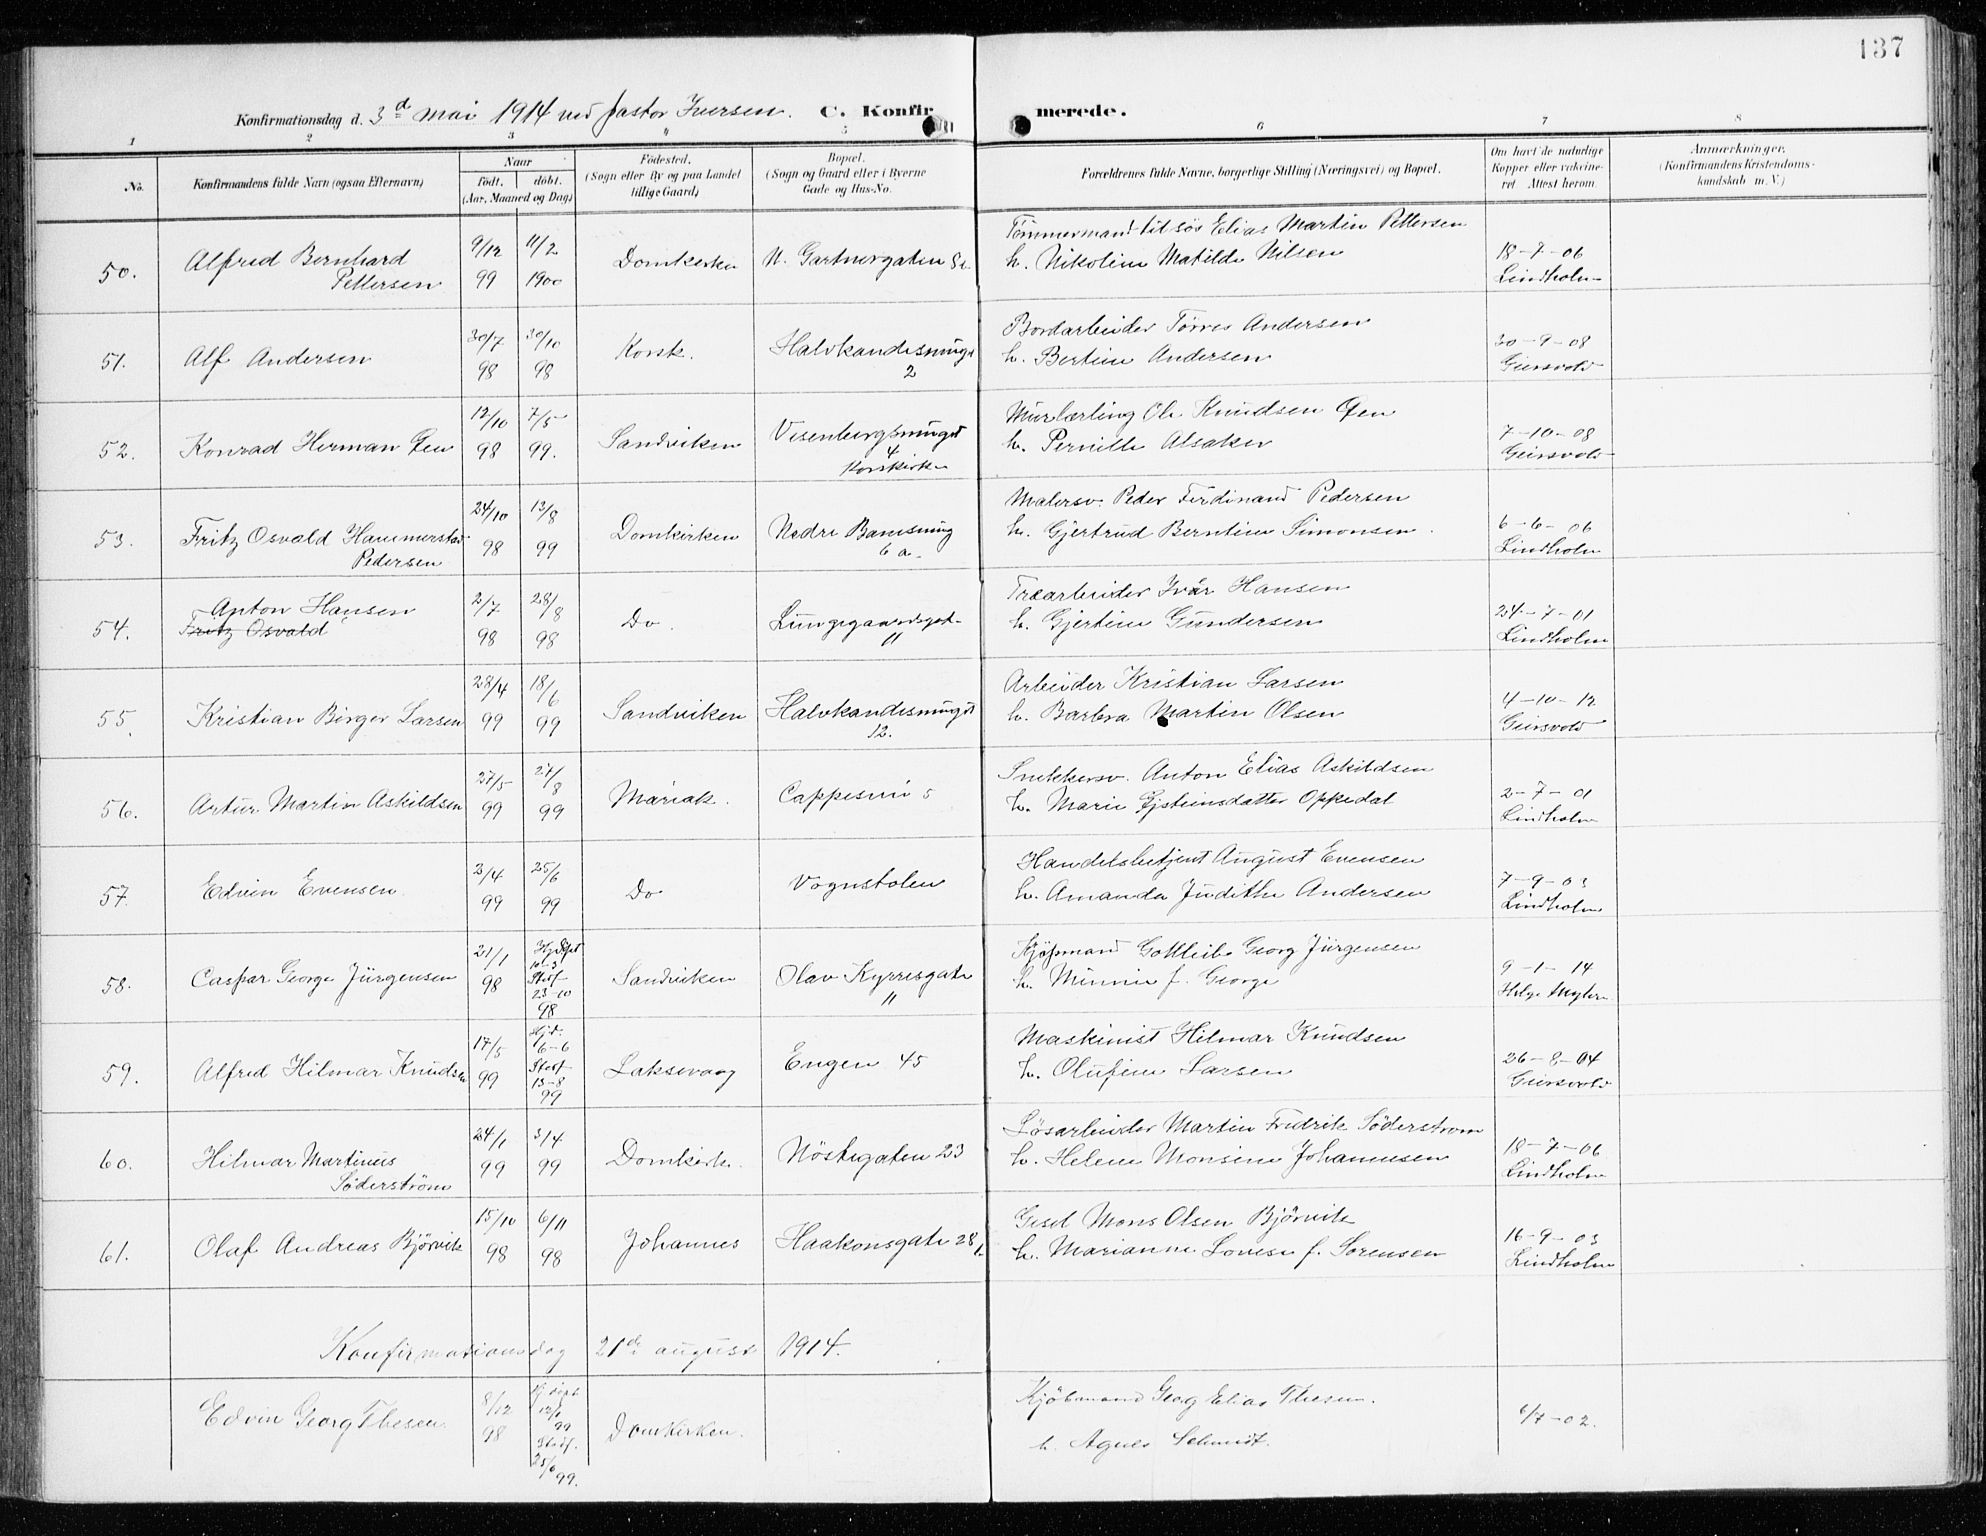 137
Konfirmationsdag d. 3d mai 1914 ved pastor Iversen. C. Konfir merede.
1 2 3 4 5 6 7 8
No. Konfirmandens fulde Navn (ogsaa Efternavn)
Naar
födt. döbt.
(Aar, Maaned og Dag)
Födested.
(Sogn eller By og paa Landet
tillige Gaard)
Bopæl.
(Sogn og Gaard eller i Byerne
Gade og Hus-No.
Forældrenes fulde Navne, borgerlige Stilling (Næringsvei) og Bopæl.
Om havt de naturlige
Kopper eller vakcine-
ret Attest herom.
Anmærkninger.
(Konfirmandens Kristendoms-
kundskab m. V.)
50. Alfred Bernhard
Pettersen
9/12 99
11/2 1900
Domkirken
N. Gartnergaten
Tömmermand til sös Elias Martin Pettersen
h. Nikoline Matilde Nilsen
18-7-06
Lindholm
51. Alf Andersen
30/7 98
30/10 98
Korsk.
Halvkandesmuget
2
Bordarbeider Tørres Andersen
h. Bertine Andersen
30-9-08
Geirsvold
52. Konrad Herman Øen
12/10 98
7/5 99.
Sandviken
Visenbergsmuget
4
Korskirken
Murlærling Ole Knudsen Øen
h. Pernille Alsaker
7-10-08
Geirsvold
53. Fritz Osvald Hammerstad
Pedersen
24/10 98
13/8 99
Domkirken
Nedre Bamsesmug
6 a.
Malersv. Peder Ferdinand Pedersen
h. Gjertrud Berntine Simonsen.
6-6-06
Lindholm
54. Anton Hansen
Fritz Osvald
2/7 98
28/8 98
Do.
Lungegaardsgat.
11
Træarbeider Ivar Hansen
h. Gjertine Gundersen
24-7-01
Lindholm
55. Kristian Birger Larsen
28/4 99
18/6 99
Sandviken
Halvkandesmuget
12.
Arbeider Kristian Larsen
h. Barbra Martin Olsen
4-10-12
Geirsvold
56. Artur Martin Askildsen
27/5 99
27/8 99
Mariak.
Cappesmi 5
Snekkersv. Anton Elias Askildsen
h. Marie Ejsteinsdatter Oppedal
2-7-01
Lindholm
57. Edvin Evensen
3/4 99
25/6 99
Do
Vognstolen
Handelsbetjent August Evensen
h. Amanda Judithe Andersen
7-9-03
Lindholm
58. Caspar George Jürgensen
21/1 98
Hjdøpt
10-3
Stadf
23-10
98
Sandviken
Olav Kyrresgate
11
Kjøpmand Gottleib Georg Jürgensen
h. Minnie f. George
9-1-14
59. Alfred Hilmar Knudsen
17/5 99
Hjd.
6-6
Stadf
13-8
99
Laksevaag
Engen 45
Maskinist Hilmar Knudsen
h. Olufine Larsen
26-8-04
Geirsvold
60. Hilmar Martinus
Søderström
24/1 99
3/4 99
Domkirk.
Nöstegaten 23
Løsarbeider Martin Fredrik Söderstrøm
h. Helene Monsine Johannesen
18-7-06
Lindholm
61. Olaf Andreas Bjørvik
15/10 98
6/11 98
Johannes
Haakonsgate 28
Gesel Mons Olsen Bjørvik
h. Marianne Lovise f. Sorensen
16-9-03
Lindholm
Konfirmationsdag 21de august 1914.
Edvin Georg Thesen
8/12 98
Hj. døpt
12/1
99
Stadf.
25/6 99.
Domkirken.
Kjöbmand Georg Elias Thesen.
h. Agnes Schmidt.
6/7-02.